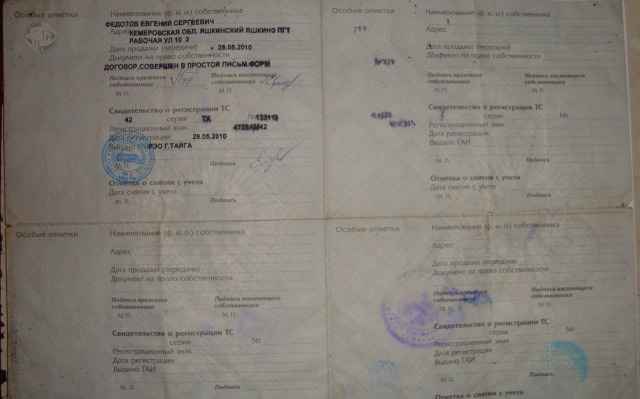 Особые отметки
Наименование (ф. и. о) собственника
ФЕДОТОВ ЕВГЕНИЙ СЕРГЕЕВИЧ
Адрес КЕМЕРОВСКАЯ ОБЛ. ЯШКИНСКИЙ ЯШКИНО ПГТ
РАБОЧАЯ УЛ
Дата продажи (передачи) 28.05.2010
Документ на право собственности
ДОГОВОР, СОВЕРШЕН В ПРОСТОЙ ПИСЬМ. ФОРМ
Подпись прежнего собственника
Подпись настоящего собственника
М. П.
М. П.
Свидетельство о регистрации ТС
42 серия ТА №
Регистрационный знак
Дата регистрации 29.05.2010
Выдано ГАИ Г. ТАЙГА
М. П.
Подпись
Отметка о снятии с учета
Дата снятия с учета
М. П.
Подпись
Особые отметки
Наименование (ф. и. о) собственника
Адрес
Дата продажи (передачи)
Документ на право собственности
Подпись прежнего собственника
Подпись настоящего собственника
М. П.
М. П.
Свидетельство о регистрации ТС
серия №
Регистрационный знак
Дата регистрации
Выдано ГАИ
М. П.
Подпись
Отметка о снятии с учета
Дата снятия с учета
М. П.
Подпись
Особые отметки
Наименование (ф. и. о) собственника
Адрес
Дата продажи (передачи)
Документ на право собственности
Подпись прежнего собственника
Подпись настоящего собственника
М. П.
М. П.
Свидетельство о регистрации ТС
серия №
Регистрационный знак
Дата регистрации
Выдано ГАИ
М. П.
Подпись
Особые отметки
Наименование (ф. и. о) собственника
Адрес
Дата продажи (передачи)
Документ на право собственности
Подпись прежнего собственника
Подпись настоящего собственника
М. П.
М. П.
Свидетельство о регистрации ТС
серия №
Регистрационный знак
Дата регистрации
Выдано ГАИ
М. П.
Подпись
Отметка о снятии с учета